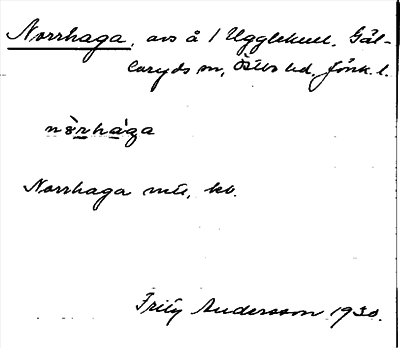 Norrhaga, avs å 1 Ugglekull, Gål-
laryds sn, Östbo hd. Jönk. l.
nòrhága
Norrhaga
Fritz Andersson 1930.